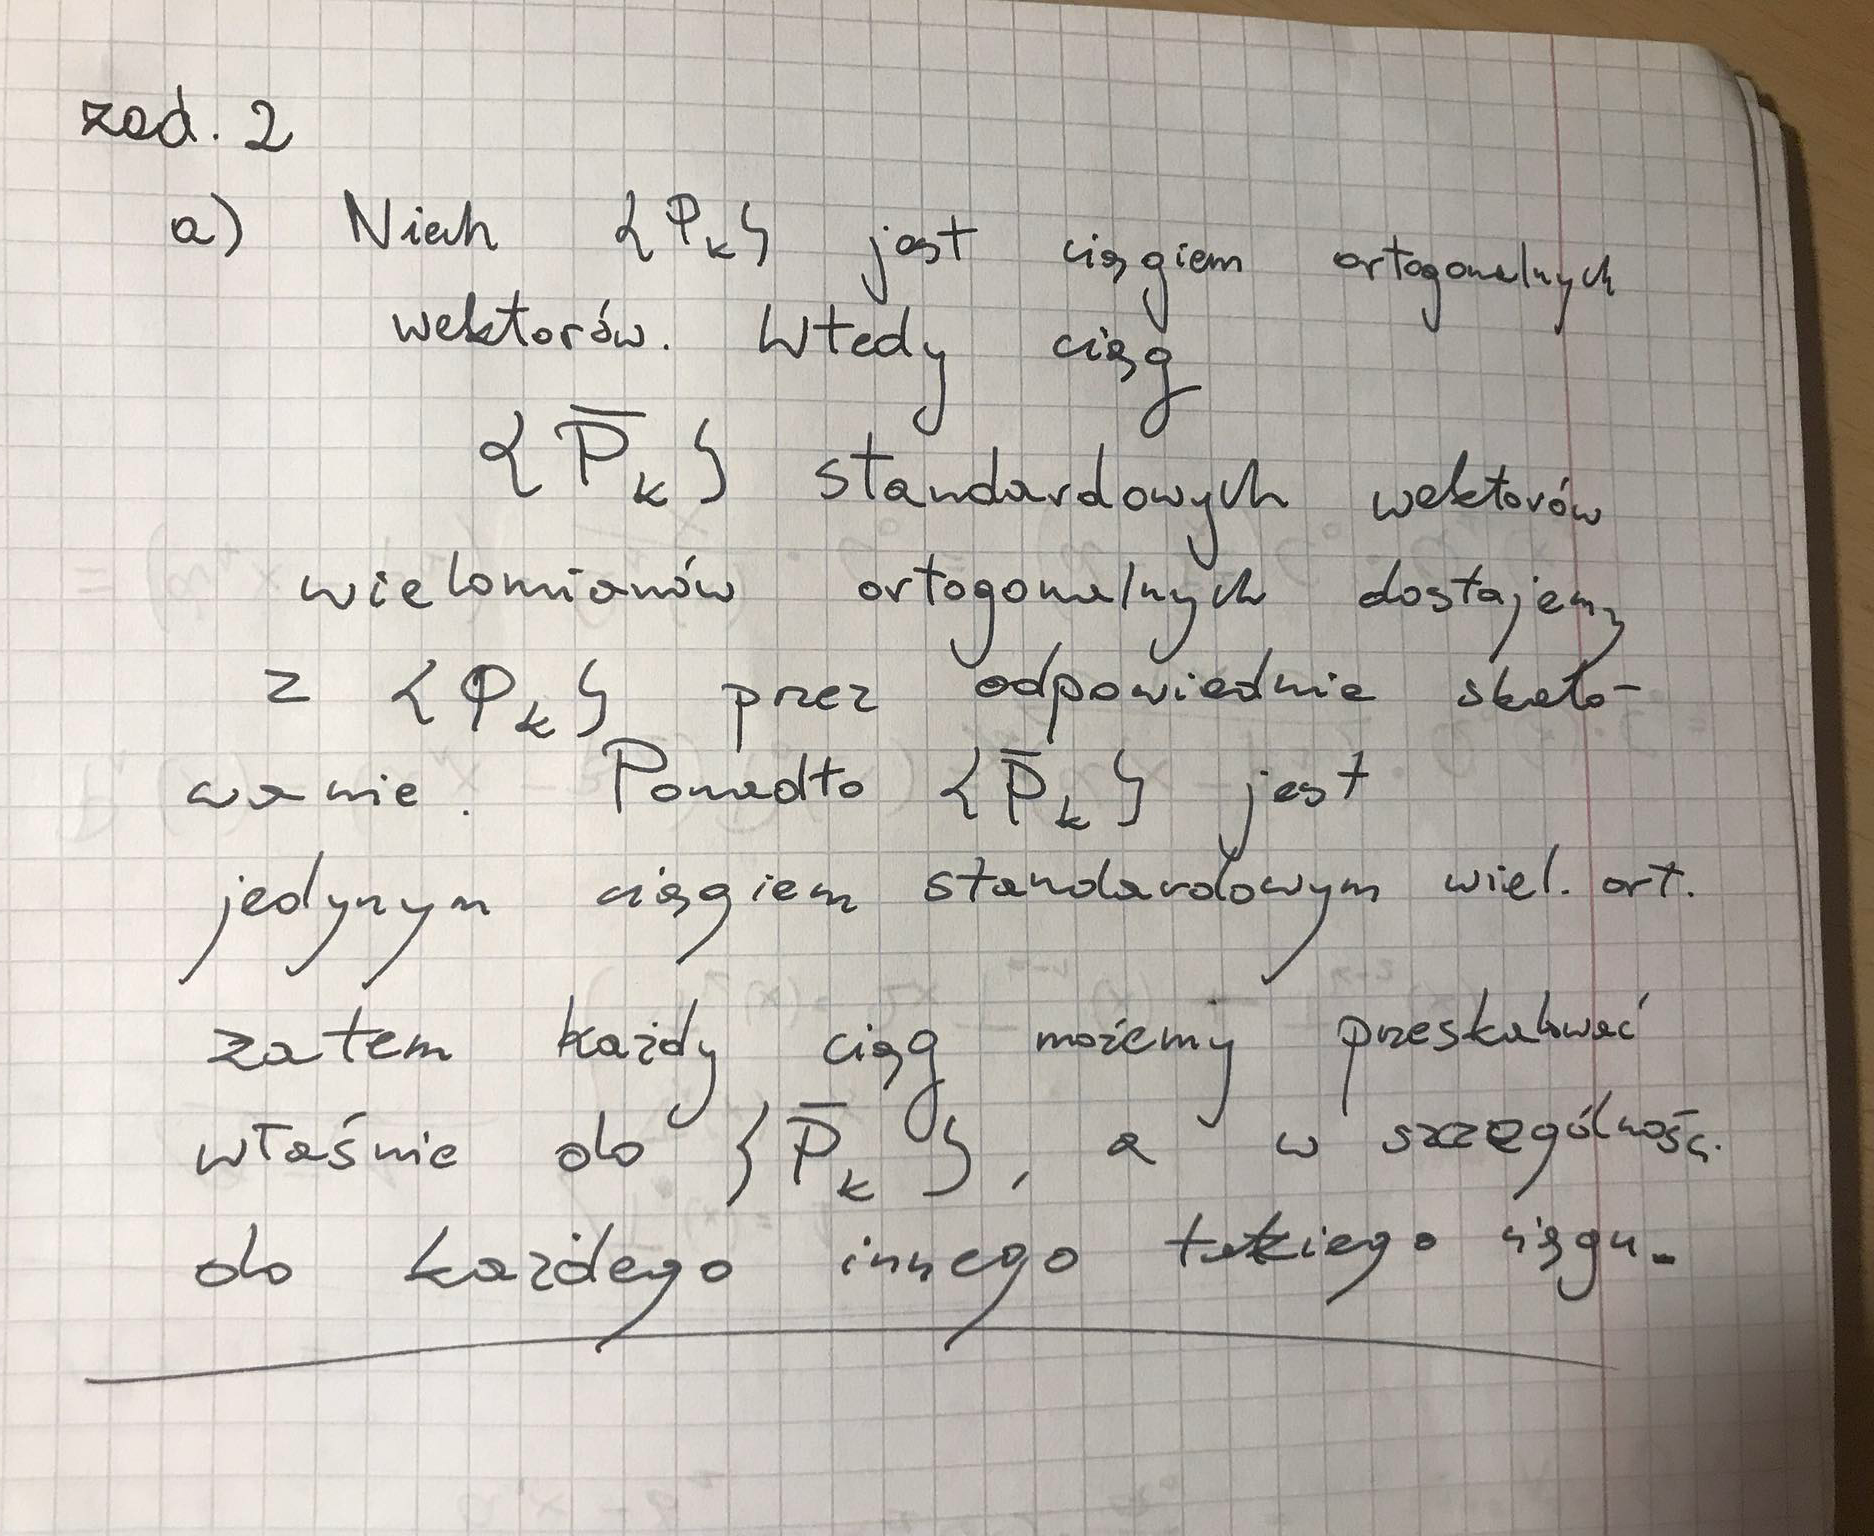 zad. 2
a) Niech {P_k} jest ciągiem ortogonalnych
wektorów. Wtedy ciąg
{P̅_k} standardowych wektorów
wielomianów ortogonalnych dostajemy
z {P_k} przez odpowiednie skalo-
wanie. Ponadto {P̅_k} jest
jedynym ciągiem standardowym wiel. ort.
zatem każdy ciąg możemy przeskalować
właśnie do {P̅_k}, a w szczególności
do każdego innego takiego ciągu.